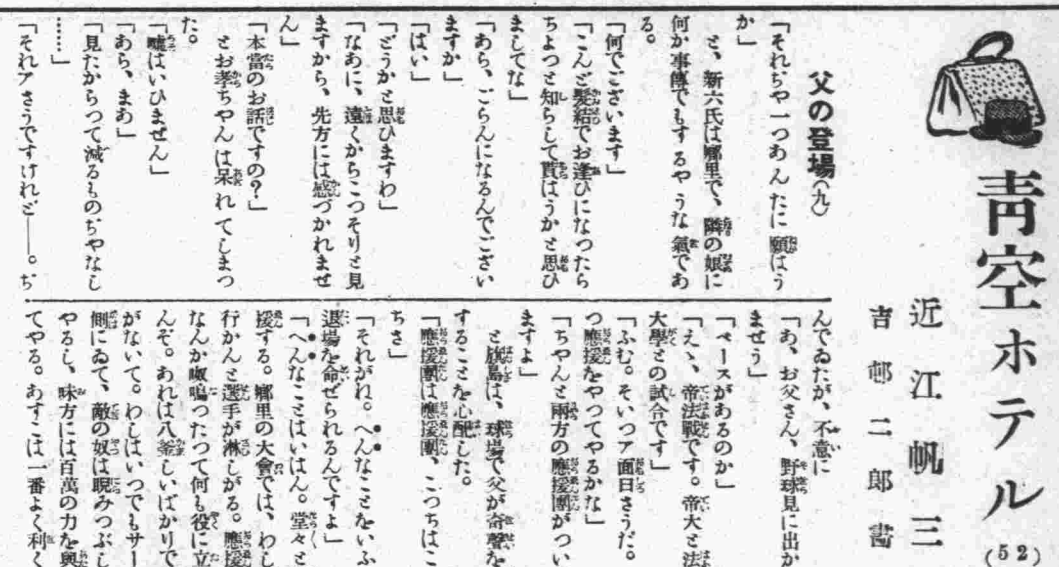 青空ホテル
(52)
近江帆三
吉邨二郎畵
父の登場(九)
「それぢや一つあんたに願はう
か」
と、新六氏は鄕里で、隣の娘に
何か事傳でもするやうな氣であ
る。
「何でございます」
「こんど髮結でお逢ひになつたら
ちよつと知らして貰はうかと思ひ
ましてな」
「あら、ごらんになるんでござい
ますか」
「はい」
「どうかと思ひますわ」
「なあに、遠くからこつそりと見
ますから、先方には感づかれませ
ん」
「本當のお話ですの?」
とお孝ちやんは呆れてしまつ
た。
「嘘はいひません」
「あら、まあ」
「見たからつて減るものぢやなし
……」
「それアさうですけれど――。ぢ
んでゐたが、不意に
「あ、お父さん、野球見に出か
ませう」
「ベースがあるのか」
「えゝ、帝法戰です。帝大と法
大學との試合です」
「ふむ。そいつア面白さうだ。
つ應援をやつてやるかな」
「ちやんと兩方の應援團がつい
ますよ」
と旗島は、球場で父が奇聲を
することを心配した。
「應援團は應援團、こつちはこ
ちさ」
「それがね。へんなことをいふ
退場を命ぜられるんですよ」
「へんなことはいはん。堂々と
援する。鄕里の大會では、わし
行かんと選手が淋しがる。應援
なんか呶鳴つたつて何も役に立
んぞ。あれは八釜しいばかりで
がないて。わしはいつでもサー
側にゐて、敵の奴は睨みつぶし
やるし、味方には百萬の力を與
てやる。あすこは一番よく利く